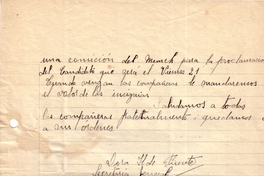 una comisión del Memch para la proclamación
del Candidato que sera el Viernes 21
Cuando vengan las compañeras le mandaremos
el valor de las insignias
Saludamos a todas
las compañeras fraternalmente i quedamos
a sus ordenes
Dora
Secretaria General